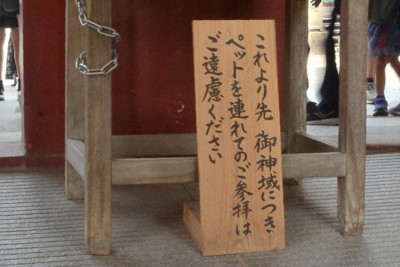 これより先 御神域につき
ペットを連れてのご参拝は
ご遠慮ください